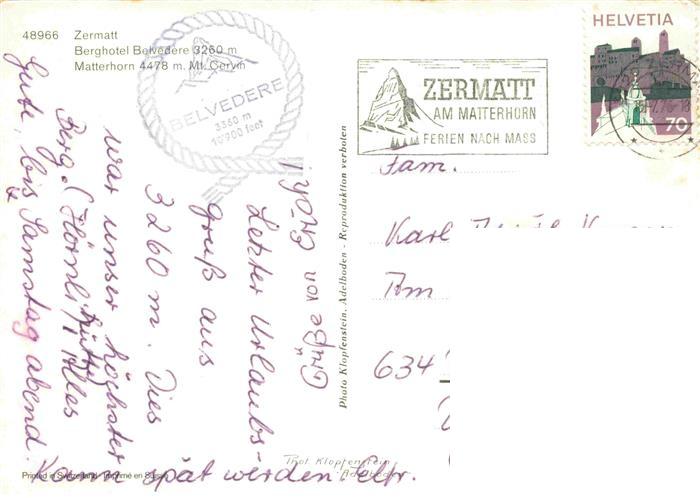 48966 Zermatt
Berghotel Belvedere 3260 m
Matterhorn 4478 m. Mt. Cervin
BELVEDERE
3260 m
10900 feet
ZERMATT
AM MATTERHORN
FERIEN NACH MASS
HELVETIA
70
Letzter Urlaubs-
gruß aus
3260 m. Dies
war unser höchster
Berg. (Hörnlihütte) Alles
Gute, bis Samstag abend.
Kann spät werden.
Grüße von
Photo Klopfenstein, Adelboden - Reproduktion verboten
Fam.
Karl
Am
634
Phot. Klopfenstein
Adelboden
Printed in Switzerland - Imprimé en Suisse